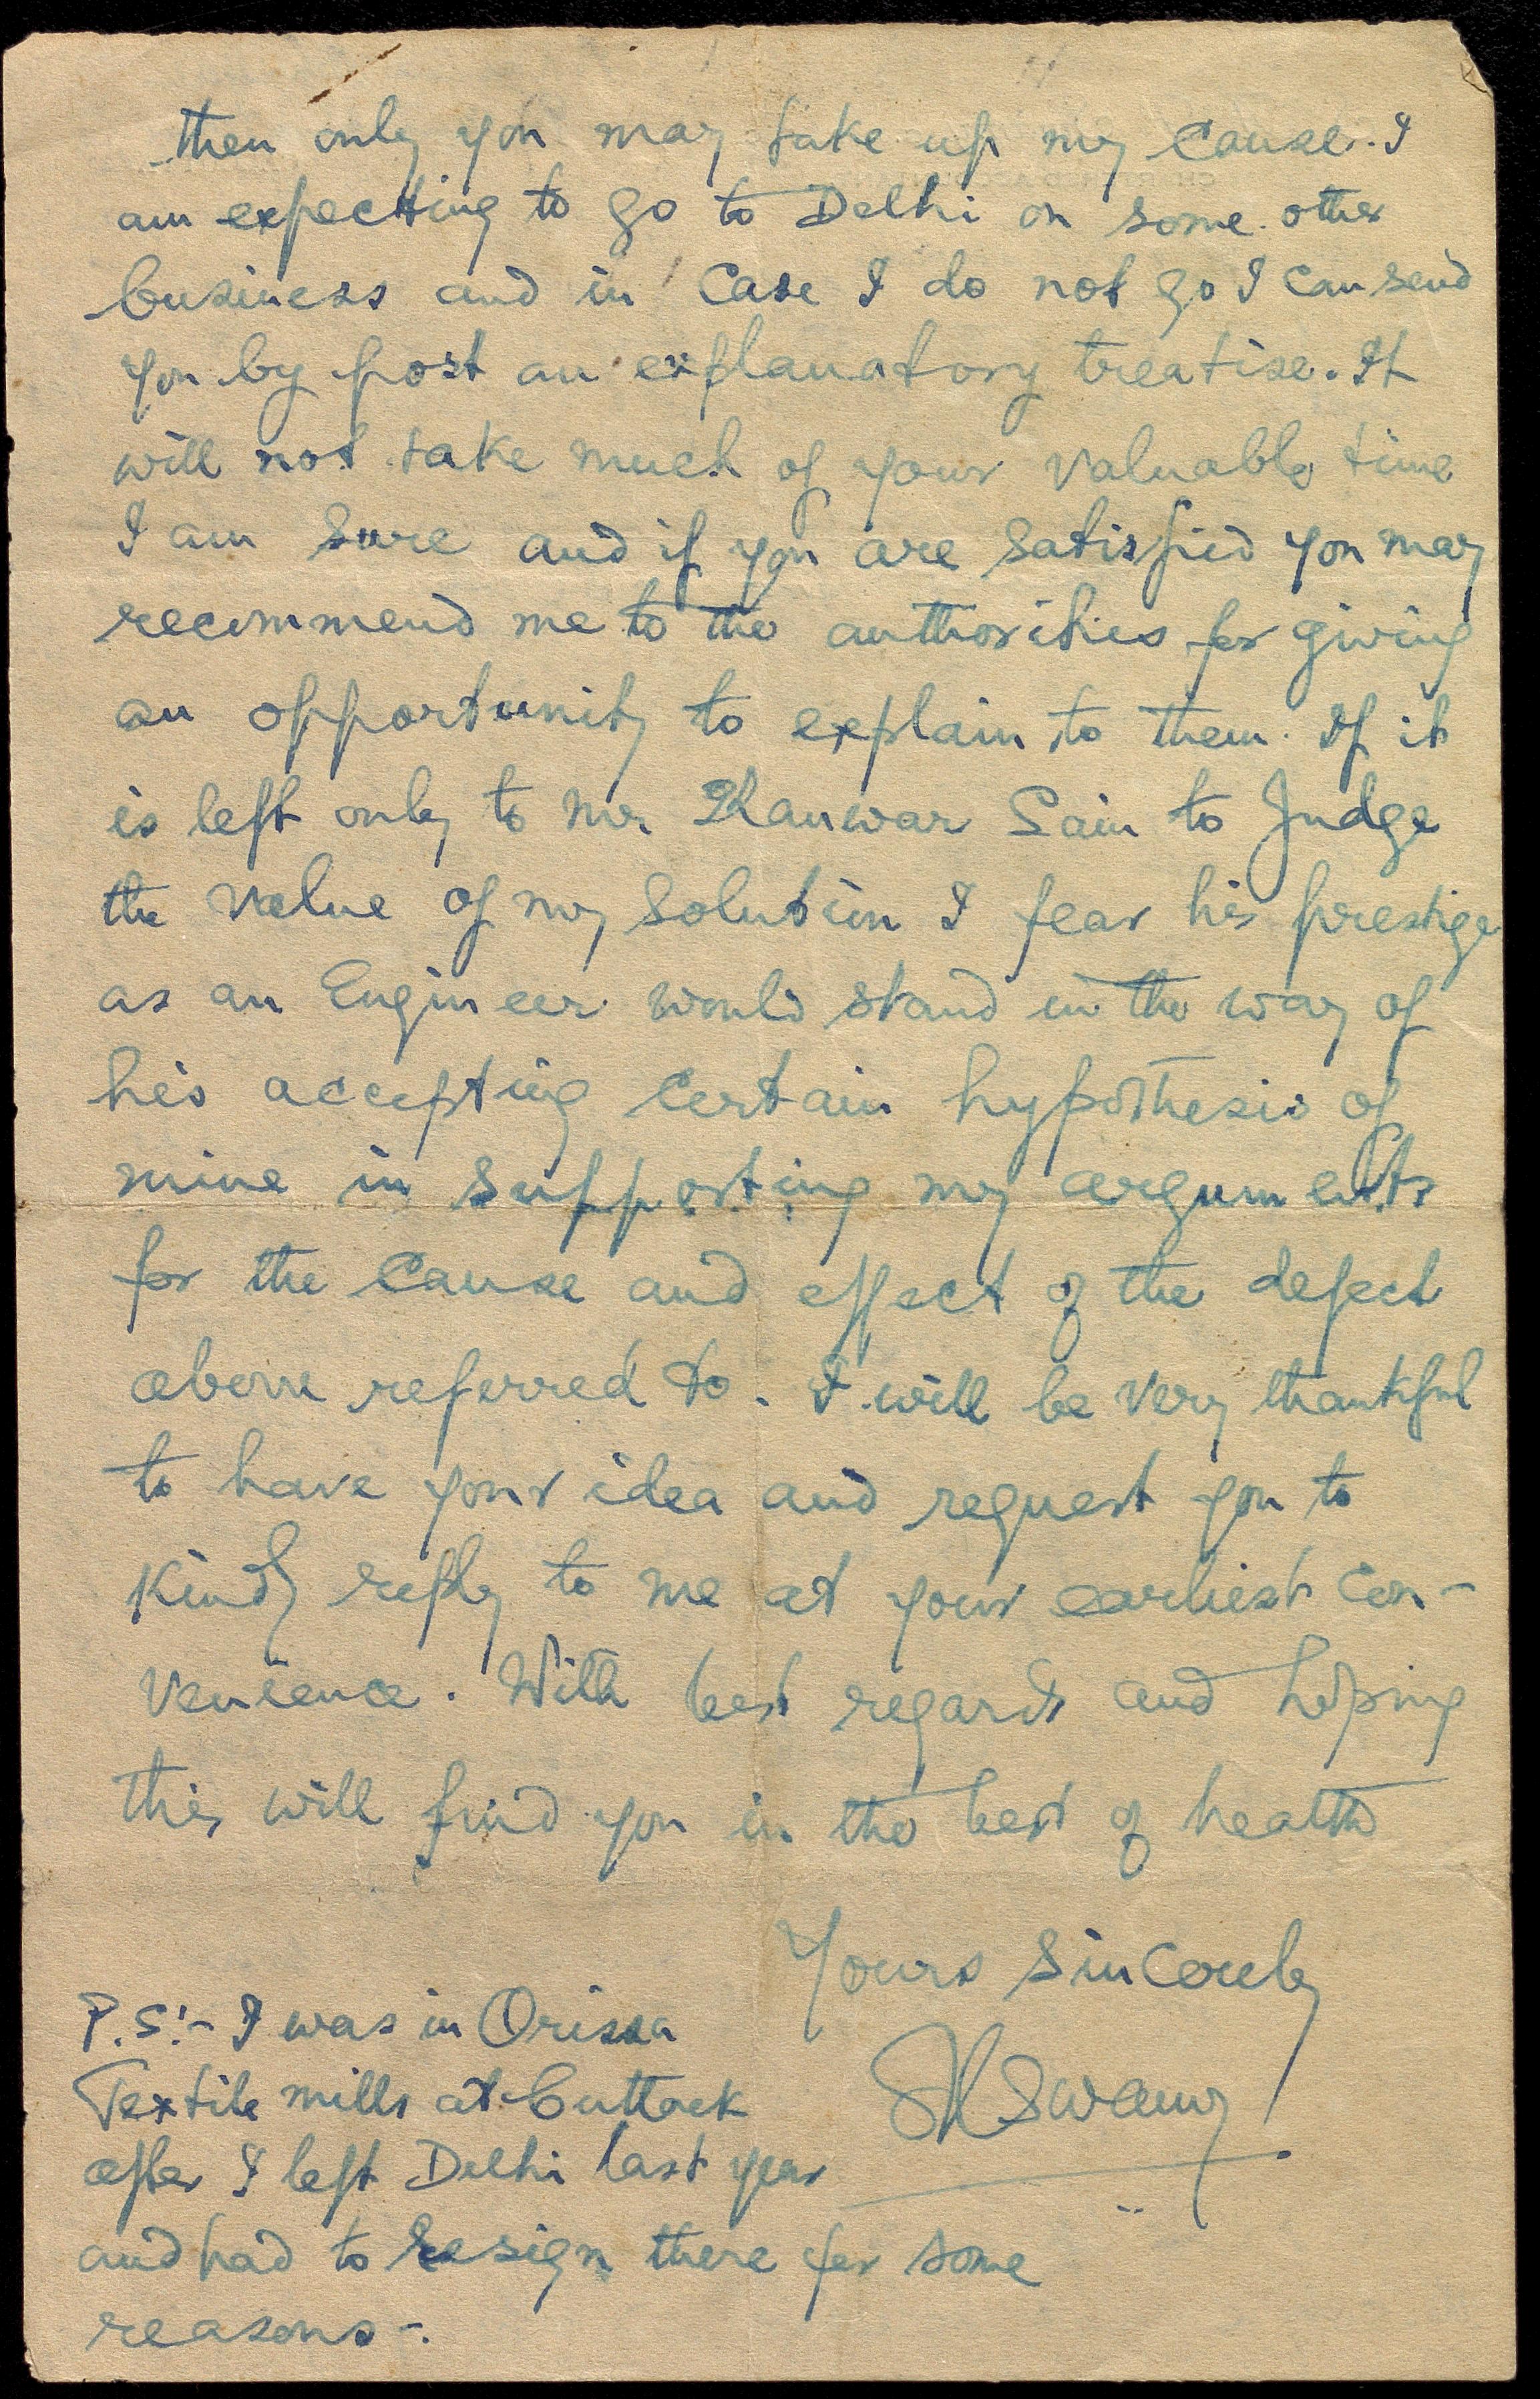 then only you may take up my cause. I
am expecting to go to Delhi on some other
business and in case I do not go I can send
you by post an explanatory treatise. It
will not take much of your valuable time
I am sure and if you are satisfied you may
recommend me to the authorities for giving
an opportunity to explain to them. If it
is left only to Mr. Kanwar Sain to Judge
the value of my solution I fear his prestige
as an Engineer would stand in the way of
his accepting certain hypothesis of
mine in supporting my arguments
for the cause and effect of the defect
above referred to. I will be very thankful
to have your idea and request you to
kindly reply to me at your earliest con-
venience. With best regards and hoping
this will find you in the best of health
Yours sincerely
P.S:- I was in Orissa
Textile mills at Cuttack
Swamy
after I left Delhi last year
and had to resign there for some
reasons-.